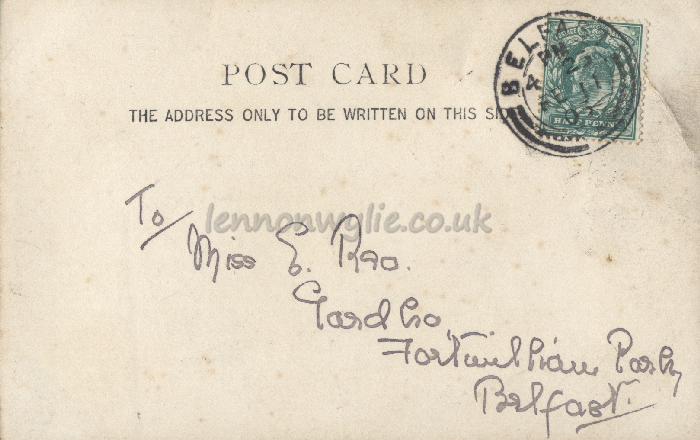 BELFAST
HALF PENNY
POST CARD
THE ADDRESS ONLY TO BE WRITTEN ON THIS SID
lennonwylie.co.uk
To
Miss E. Rao.
Fortwilliam Park,
Belfast.